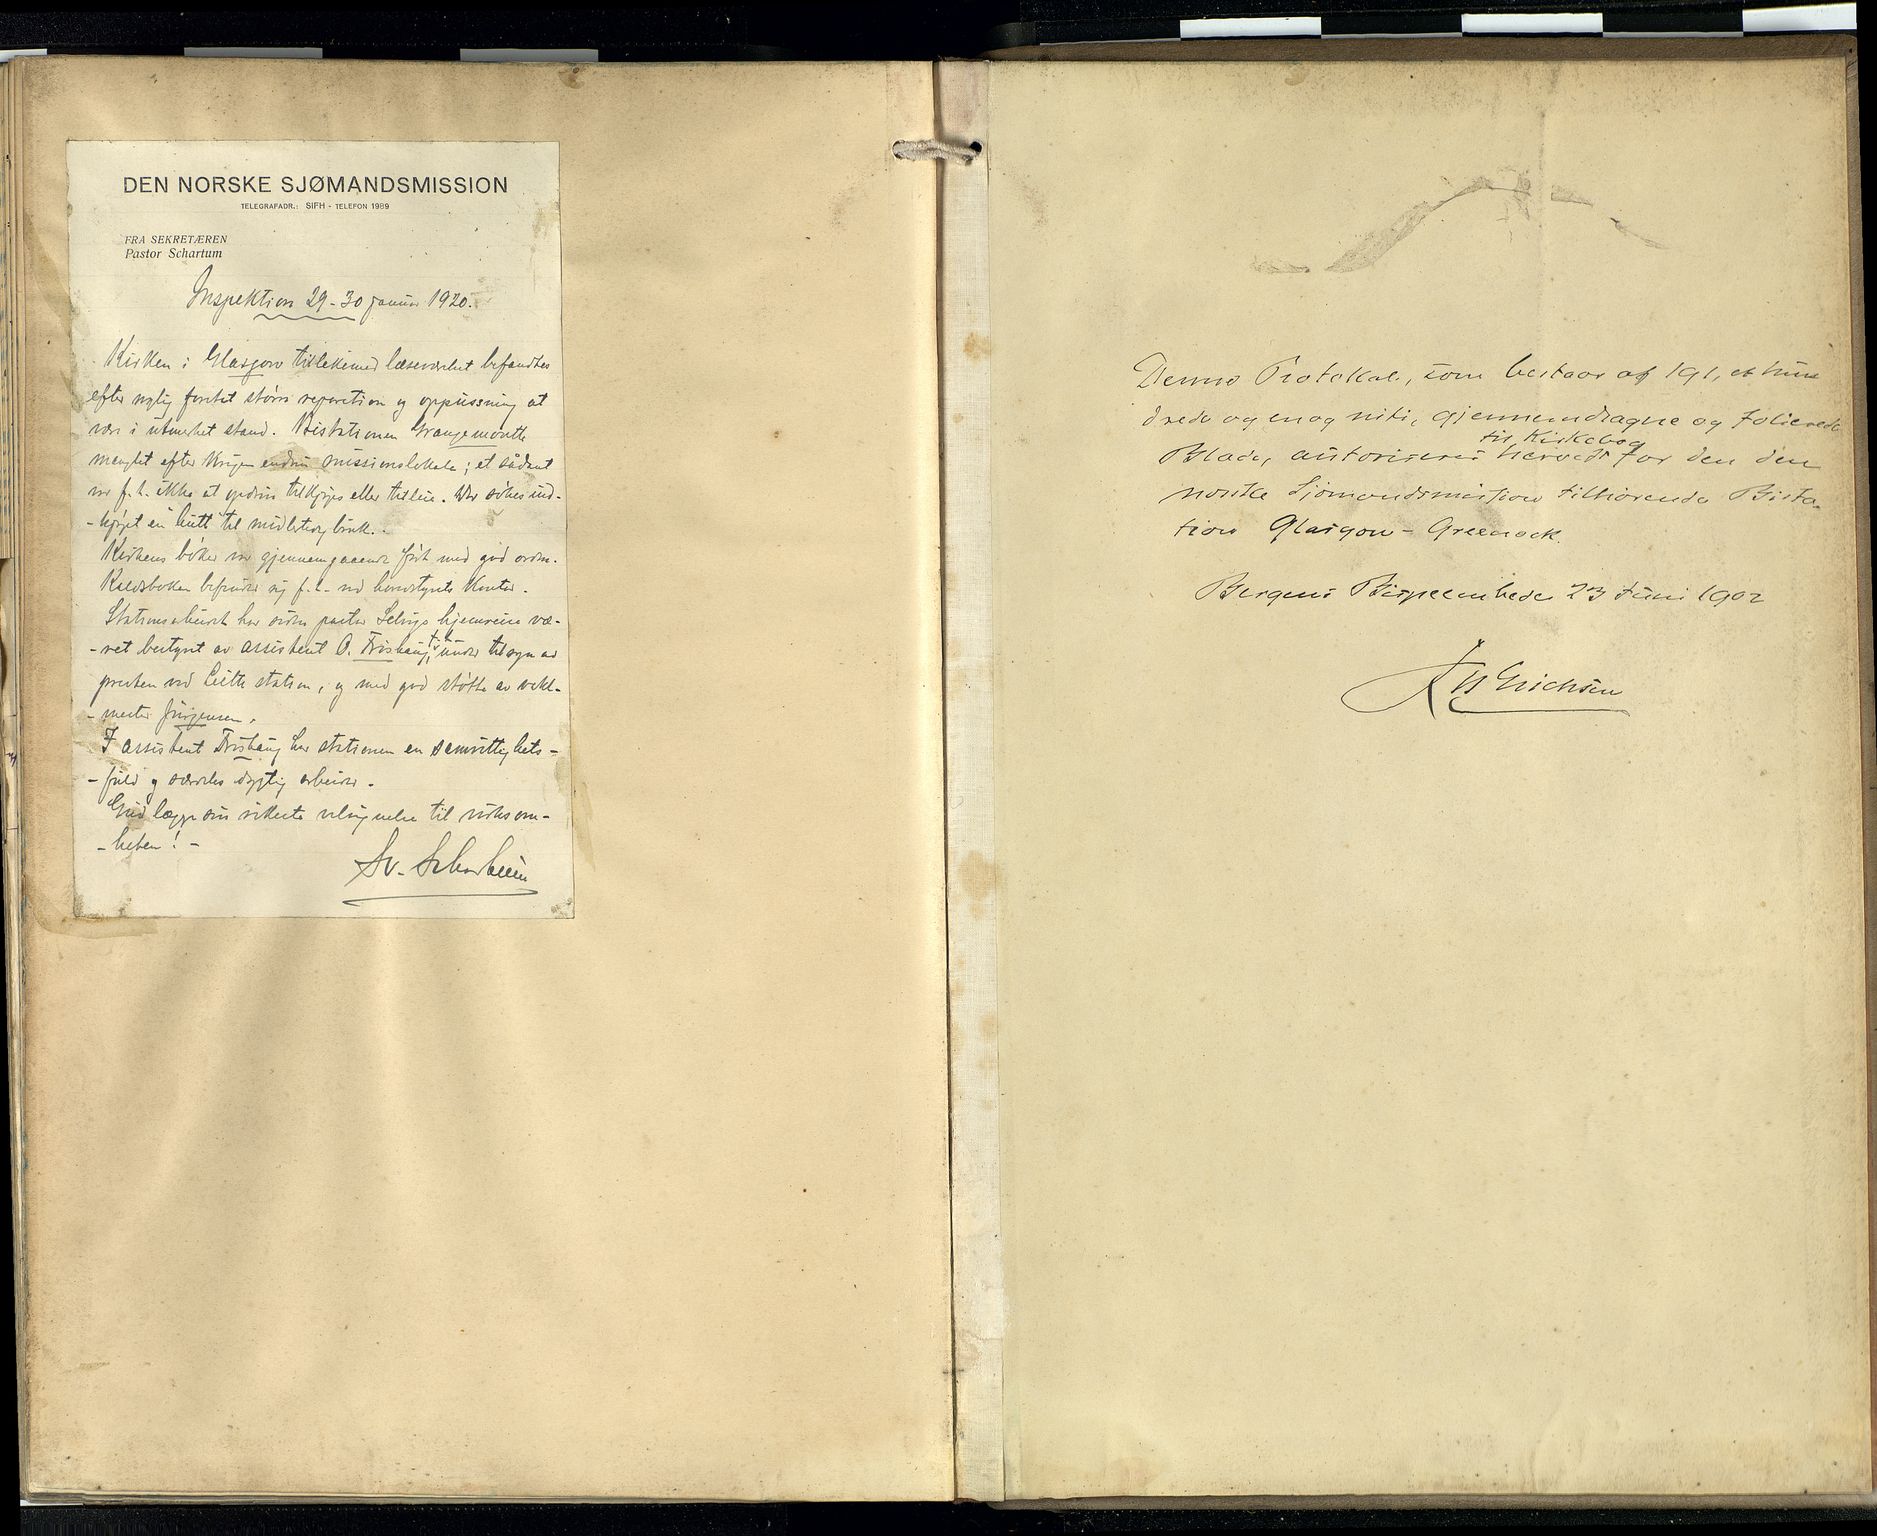 DEN NORSKE SJØMANDSMISSION
TELEGRAFADR.: SIFH - TELEFON 1989
FRA SEKRETÆREN
Pastor Schartum
Inspektion 29-30 januar 1920.
Kirken i Glasgow tillikemed læseværelset befandtes
efter nylig foretat større reparation og oppussning at
være i utmerket stand. Bistationen Grangemouth
manglet efter krigen endnu missionslokale; et sådant
var f.t. ikke at opdrive tilkjøps eller tilleie. Der søkes ind-
-kjøpt en hütt til midlertidig bruk.
Kirkens bøker var gjennemgaaende ført med god orden.
Kaldsboken befinder sig f.t. ved hovedstyrets kontor.
Stationsarbeidet har siden pastor Selvigs hjemreise væ-
-ret bestyret av assistent O. Trishaug, under tilsyn av
presten ved Leith station, og med god støtte av
-mester Jürgensen.
I assistent Trishaug har stationen en samvittighets-
-fuld og særdeles dygtig arbeider.
Gud lægge sin rikeste velsignelse til virksom-
-heten! -
Sv. Schartum
Denne Protokol, som bestaar af 191, et hun-
drede og en og niti, gjennemdragne og folierede
til Kirkebog
Blade, autoriseres herved for den den
norske Sjømandsmission tilhørende Bista-
tion Glasgow - Greenock.
Bergens Bispeembede 23 Juni 1902
Erichsen